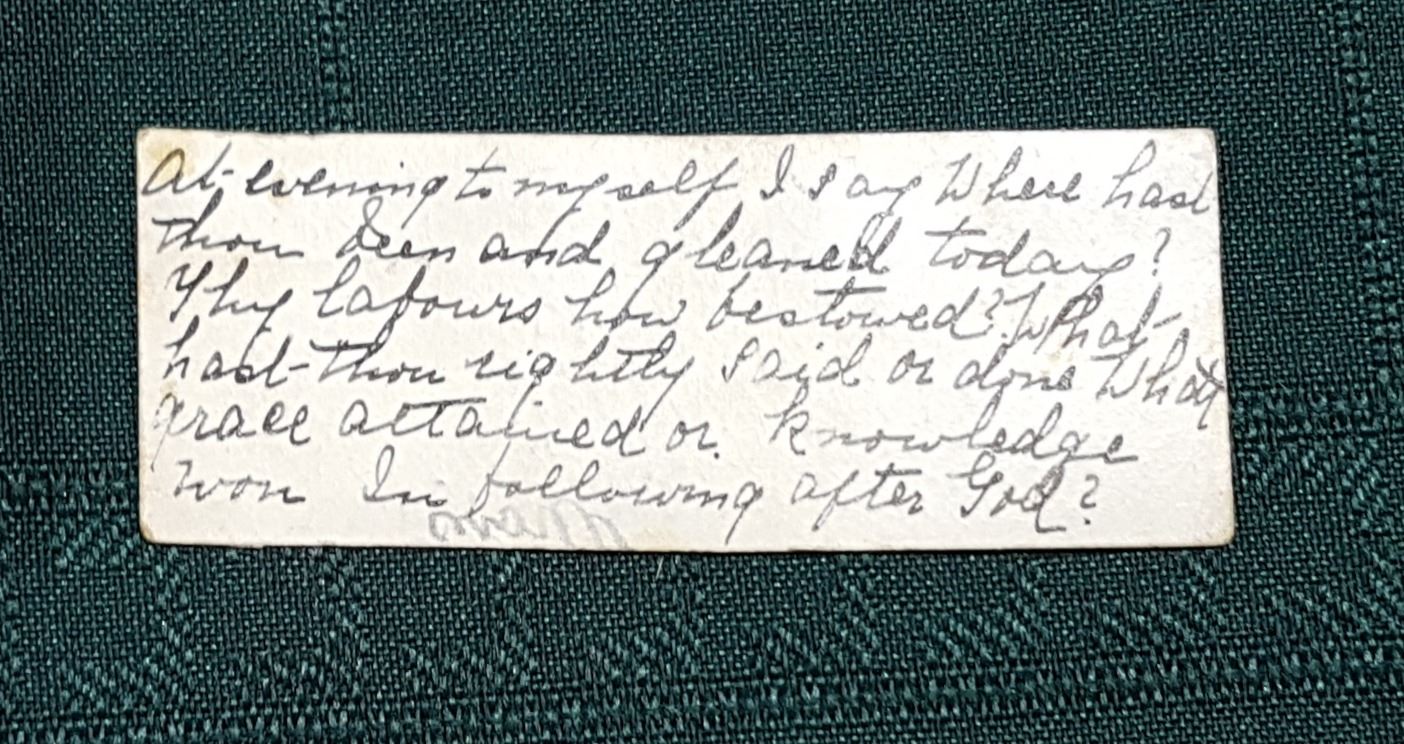 At evening to myself I say Where hast
thou been and gleaned today?
Thy labours how bestowed? What
hast thou rightly said or done What
grace attained or knowledge
won In following after God?